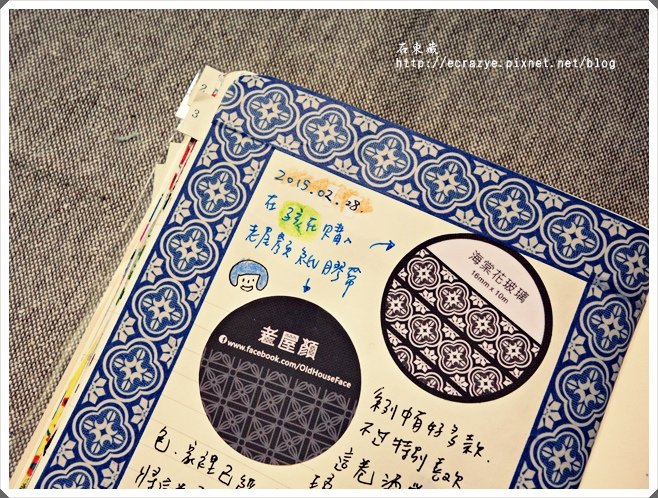 石東藏
http://ecrazye.pixnet.net/blog
2
3
2015.02.28.
在 購入
老屋顏紙膠帶
海棠花玻璃
16mm x 10m
老屋顏
www.facebook.com/OldHouseFace
系列中有好多款.
不過特別喜歡
這卷
包.家裡已經
將這卷